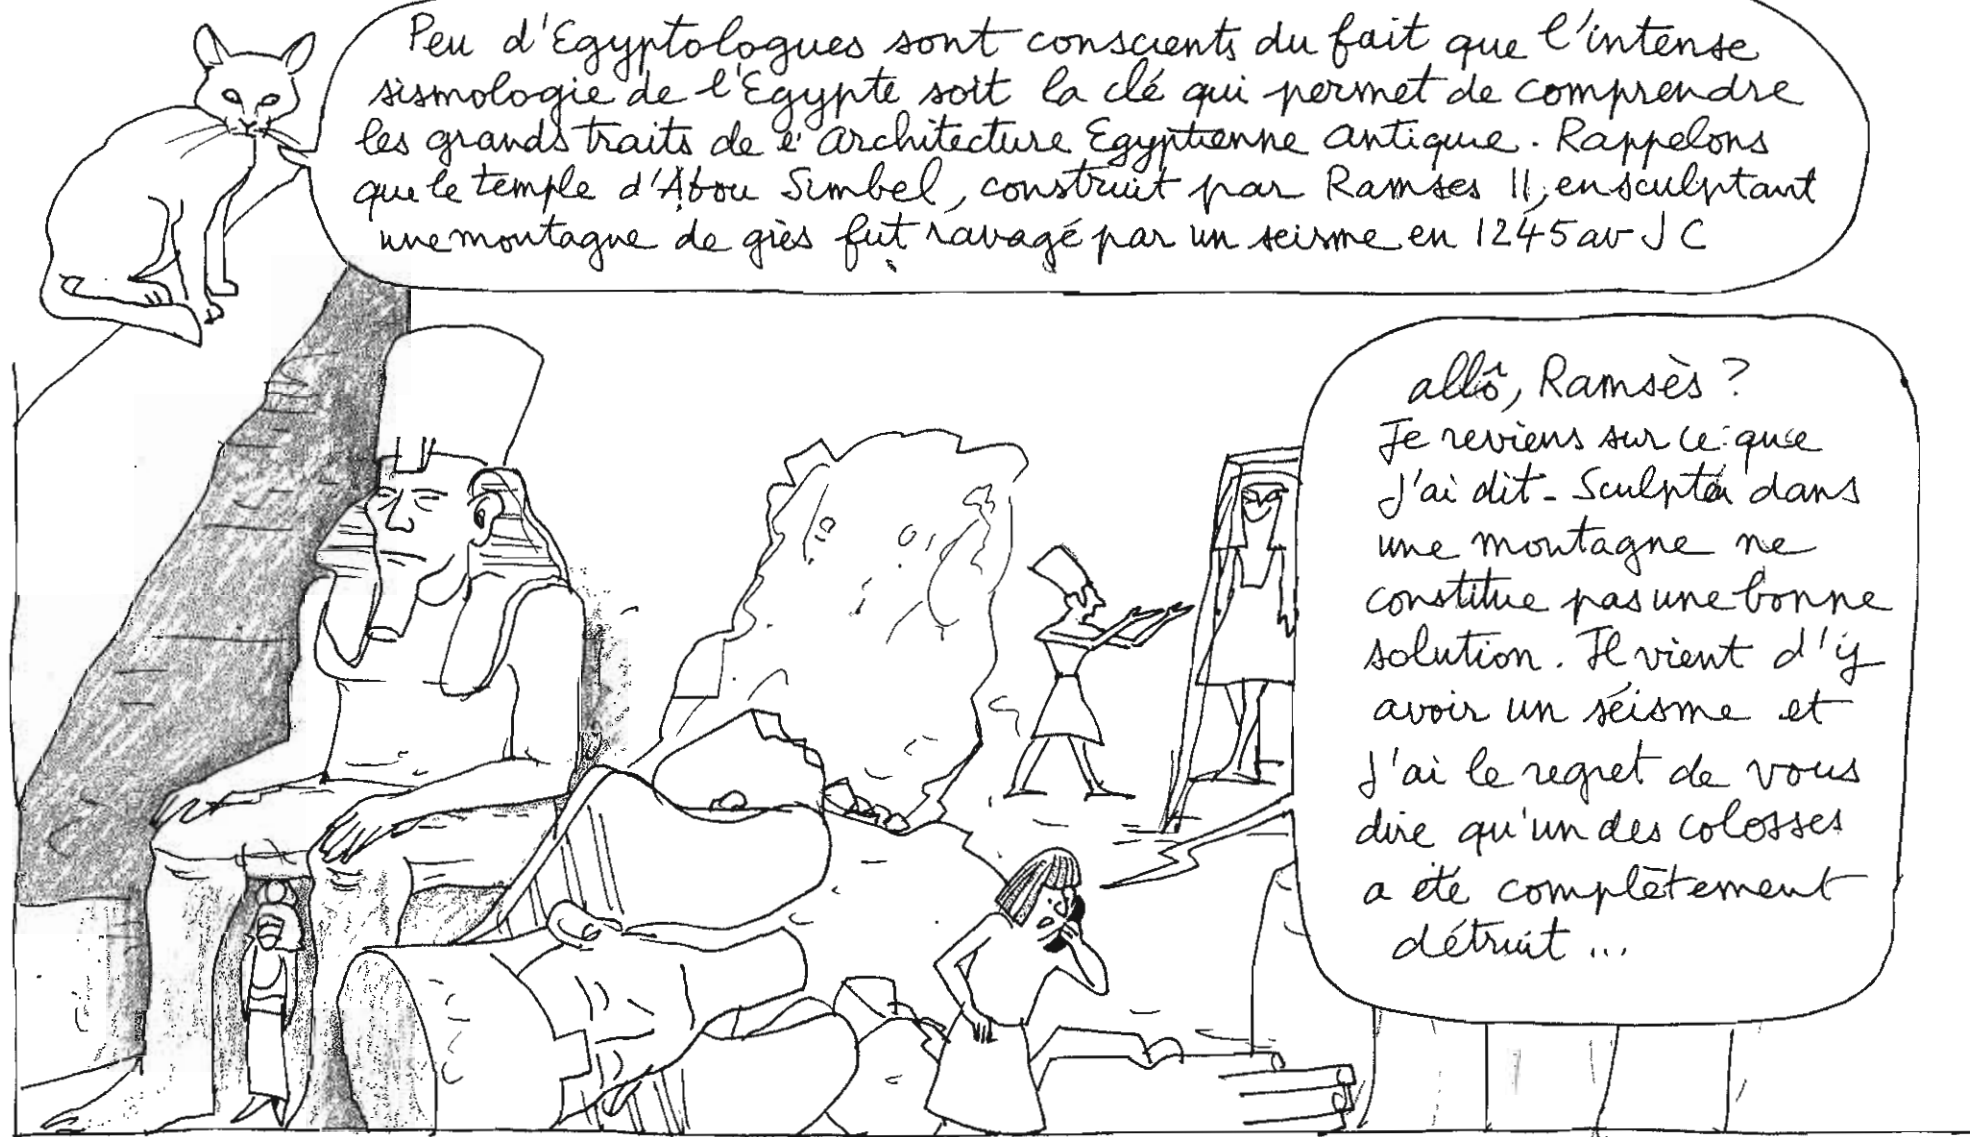 Peu d'Egyptologues sont conscients du fait que l'intense
sismologie de l'Egypte soit la clé qui permet de comprendre
les grands traits de l'architecture Egyptienne antique. Rappelons
que le temple d'Abou Simbel, construit par Ramses II, en sculptant
une montagne de grès fut ravagé par un seisme en 1245 av J C
allô, Ramsès ?
Je reviens sur ce que
j'ai dit - Sculpter dans
une montagne ne
constitue pas une bonne
solution. Il vient d'y
avoir un séisme et
j'ai le regret de vous
dire qu'un des colosses
a été complètement
détruit ...